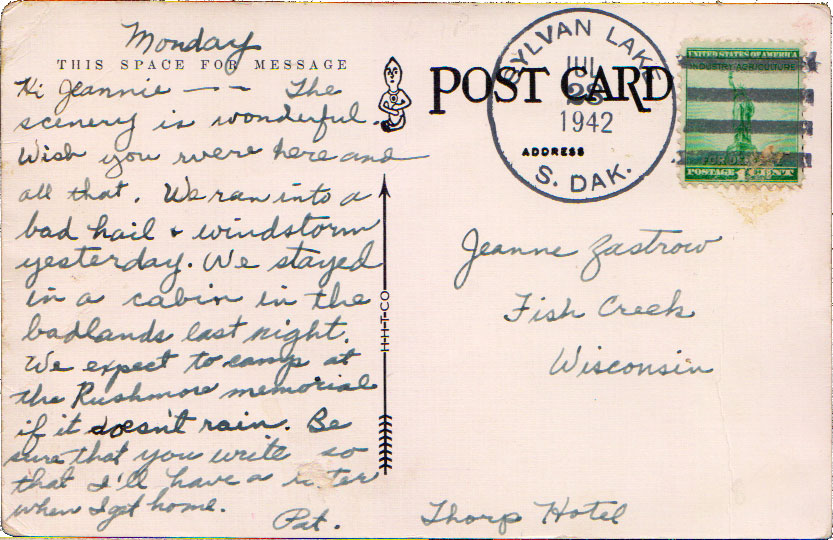 Monday
THIS SPACE FOR MESSAGE
Hi Jeannie — — The
scenery is wonderful.
Wish you were here and
all that. We ran into a
bad hail & windstorm
yesterday. We stayed
in a cabin in the
badlands last night.
We expect to camp at
the Rushmore memorial
if it doesn't rain. Be
sure that you write so
that I'll have a
when I get home.
Pat.
H-H-T-CO
POST CARD
ADDRESS
SYLVAN LAKE
JUL
28
1942
S. DAK.
UNITED STATES OF AMERICA
INDUSTRY AGRICULTURE
FOR DEFENSE
POSTAGE 1 CENT
Jeanne Zastrow
Fish Creek
Wisconsin
Thorp Hotel